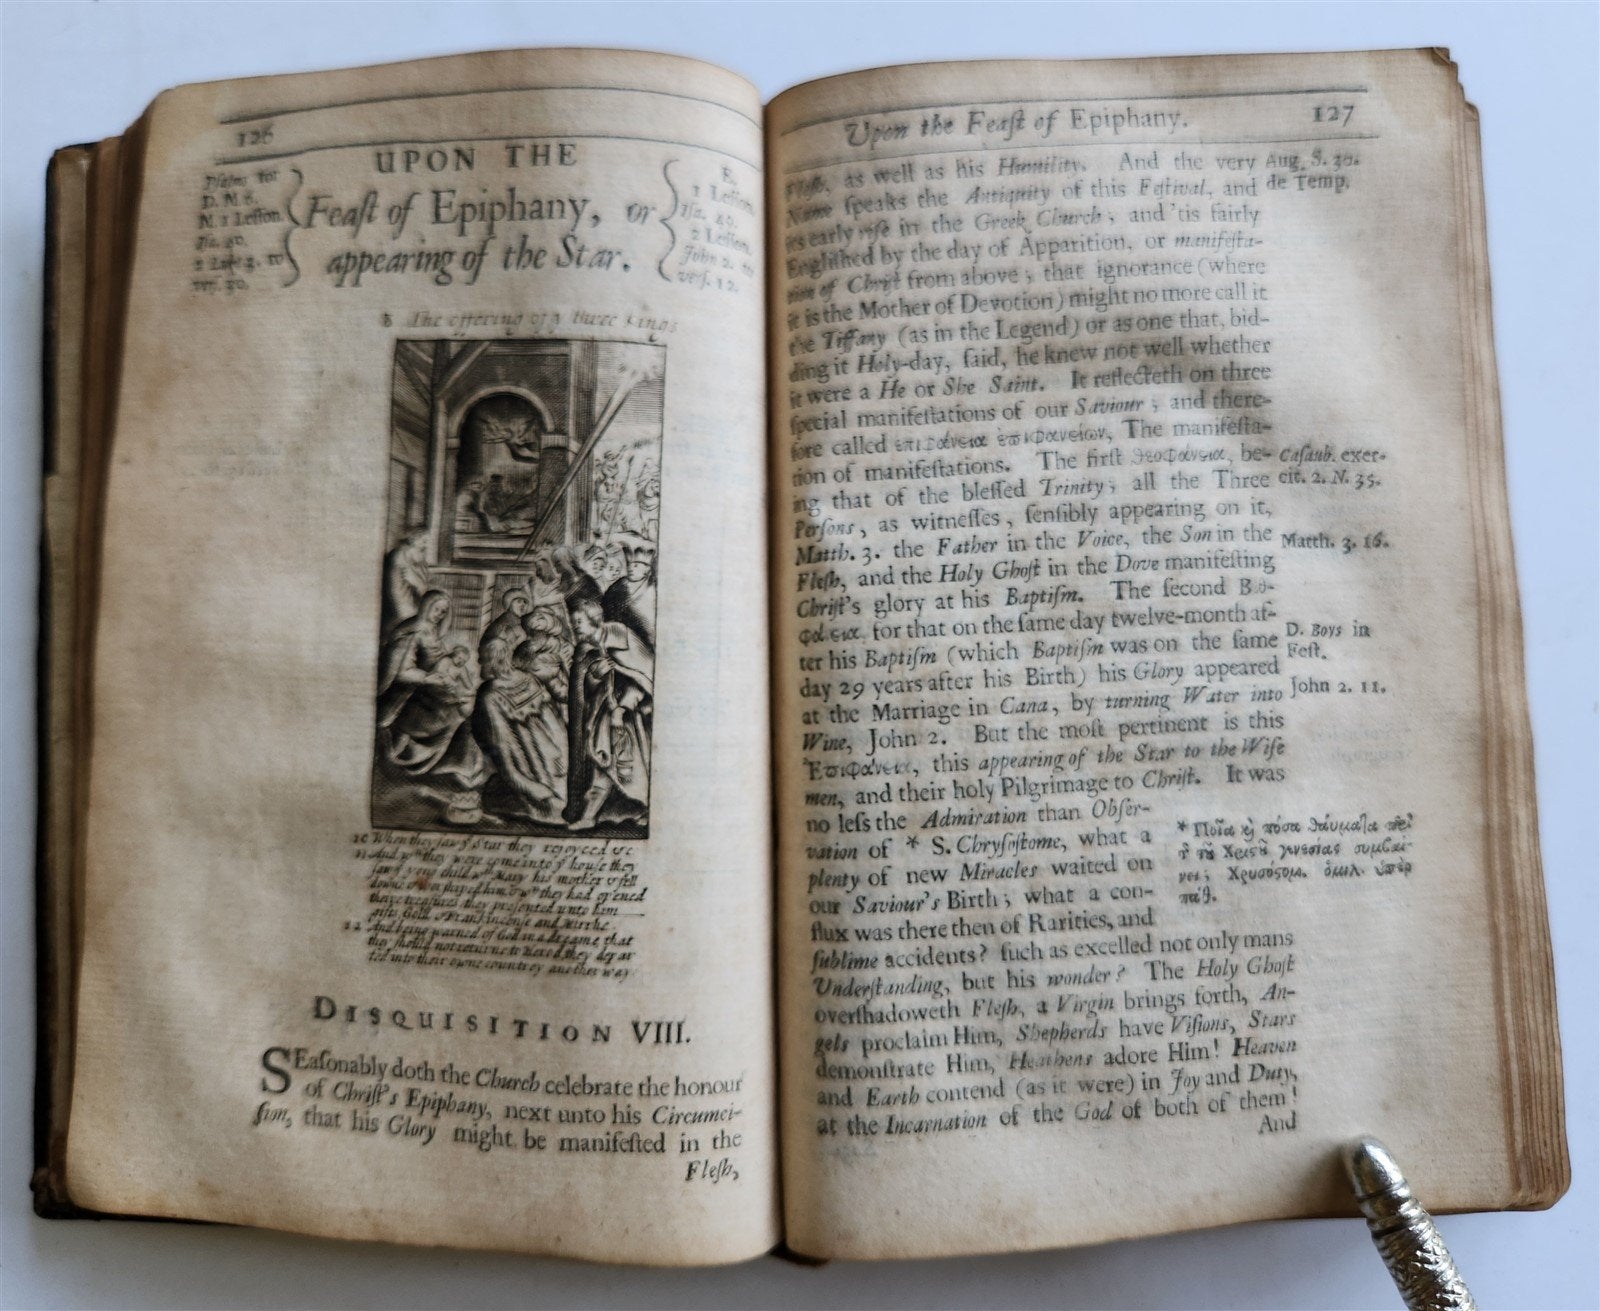 126
UPON THE
Feaſt of Epiphany, or
appearing of the Star.
Pſalms
D. M. 8.
M. 1 Leſſon.
Iſa. 40.
2 Luke 3. to
verſ. 30.
E.
1 Leſſon.
Iſa. 49.
2 Leſſon.
John 2. to
verſ. 12.
8 The offering of y three Kings
10 When they ſaw y Star they rejoyced &c
11 And wn they were come into y houſe they
ſaw y yong child wth Mary his mother & fell
downe & worſhiped him & wn they had opened
there treaſures they preſented unto him
gifts Gold & Frankinſence and Mirrhe.
12 And being warned of God in a dreame, that
they ſhould not returne to Herod they depar
ted into their owne countrey another way
DISQUISITION VIII.
SEaſonably doth the Church celebrate the honour
of Chriſt's Epiphany, next unto his Circumci-
ſion, that his Glory might be manifeſted in the
Fleſh,
Upon the Feaſt of Epiphany. 127
Fleſh, as well as his Humility. And the very
Name ſpeaks the Antiquity of this Feſtival, and
its early riſe in the Greek Church; and 'tis fairly
Engliſhed by the day of Apparition, or manifeſta-
tion of Chriſt from above; that ignorance (where
it is the Mother of Devotion) might no more call it
the Tiffany (as in the Legend) or as one that, bid-
ding it Holy-day, ſaid, he knew not well whether
it were a He or She Saint. It reflecteth on three
ſpecial manifeſtations of our Saviour; and there-
fore called ἐπιφάνεια ἐπιφανείων, The manifeſta-
tion of manifeſtations. The firſt θεοφάνεια, be-
ing that of the bleſſed Trinity; all the Three
Perſons, as witneſſes, ſenſibly appearing on it,
Matth. 3. the Father in the Voice, the Son in the
Fleſh, and the Holy Ghoſt in the Dove manifeſting
Chriſt's glory at his Baptiſm. The ſecond
for that on the ſame day twelve-month af-
ter his Baptiſm (which Baptiſm was on the ſame
day 29 years after his Birth) his Glory appeared
at the Marriage in Cana, by turning Water into
Wine, John 2. But the moſt pertinent is this
Ἐπιφάνεια, this appearing of the Star to the Wiſe
men, and their holy Pilgrimage to Chriſt. It was
no leſs the Admiration than Obſer-
vation of * S. Chryſoſtome, what a
plenty of new Miracles waited on
our Saviour's Birth; what a con-
flux was there then of Rarities, and
ſublime accidents? ſuch as excelled not only mans
Underſtanding, but his wonder? The Holy Ghoſt
overſhadoweth Fleſh, a Virgin brings forth, An-
gels proclaim Him, Shepherds have Viſions, Stars
demonſtrate Him, Heathens adore Him! Heaven
and Earth contend (as it were) in Joy and Duty,
at the Incarnation of the God of both of them!
And
Aug. S. 30.
de Temp.
Caſaub. exer-
cit. 2. N. 35.
Matth. 3. 16.
D. Boys in
Feſt.
John 2. 11.
* Ποῖα ϗ πόσα θαύματα
τ τῦ Χριςῦ γενεσίας συμβαί-
νει; Χρυσόςομ. ὁμιλ.